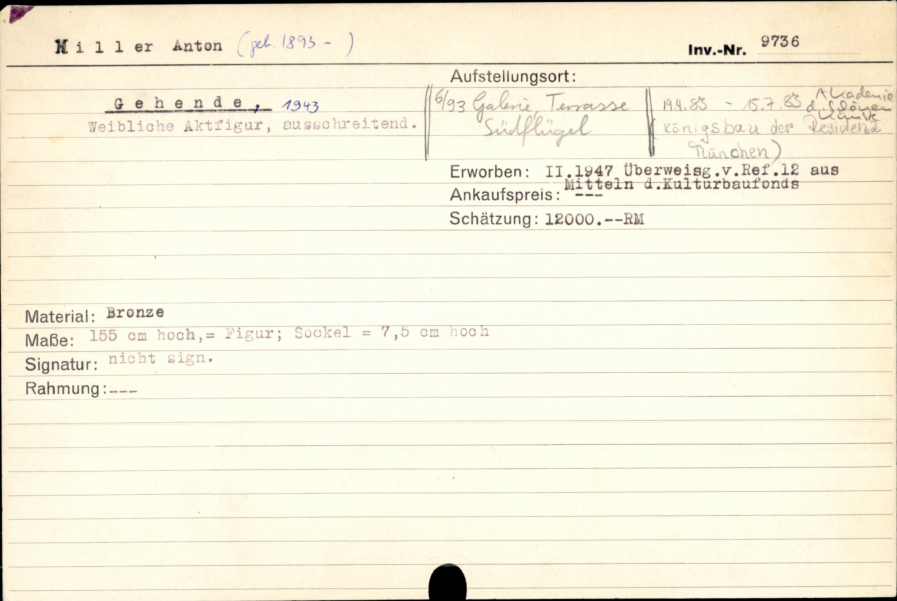 Hiller Anton (geb. 1893 - )
Inv.-Nr. 9736
Aufstellungsort:
Gehende, 1943
Weibliche Aktfigur, ausschreitend.
6/93 Galerie, Terrasse
Südflügel
19.4.83 - 15.7.83 Akademie
d. Schönen
Künste
(Königsbau der Residenz
München)
Erworben: II.1947 Überweisg.v.Ref.12 aus
Mitteln d.Kulturbaufonds
Ankaufspreis: ---
Schätzung: 12000.--RM
Material: Bronze
Maße: 155 cm hoch,= Figur; Sockel = 7,5 cm hoch
Signatur: nicht sign.
Rahmung:---